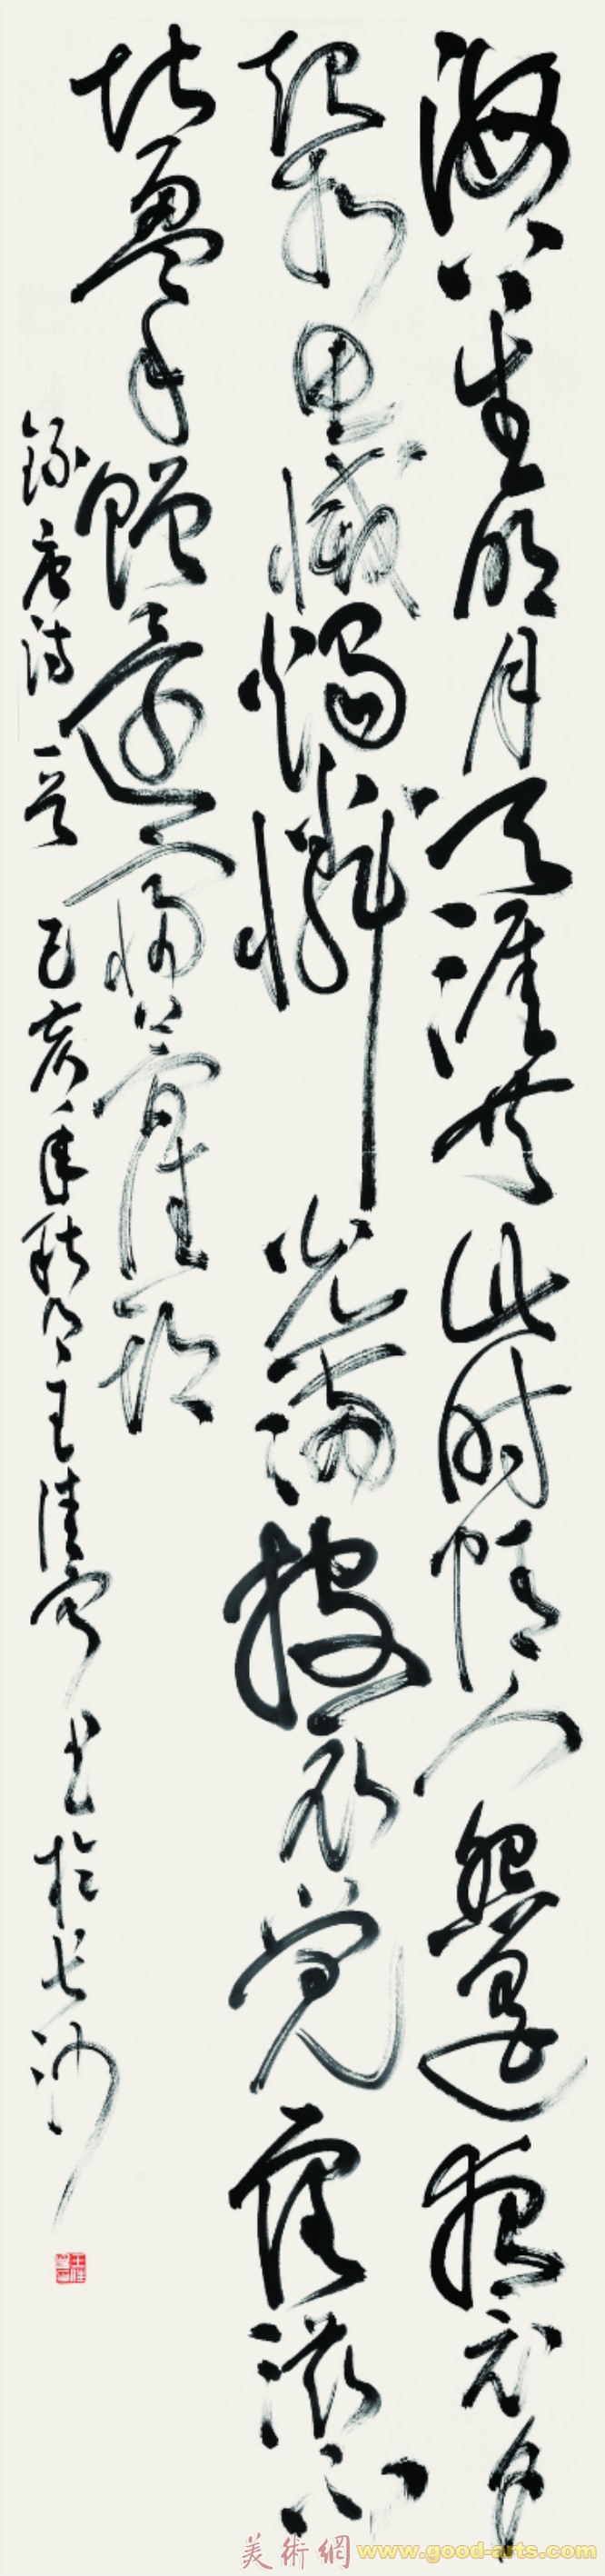 海上生明月天涯共此时情人怨遥夜竟夕
起相思滅燭憐光满披衣覺露滋不
堪盈手贈還寢夢佳期
録唐诗一首 己亥年秋月王佳 书於长沙
美術網 www.good-arts.com